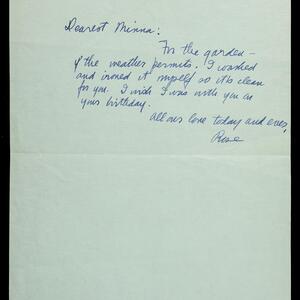 Dearest Minna:
For the garden –
if the weather permits. I washed
and ironed it myself so it's clean
for you. I wish I was with you on
your birthday.
All our love today and ever,
Rose